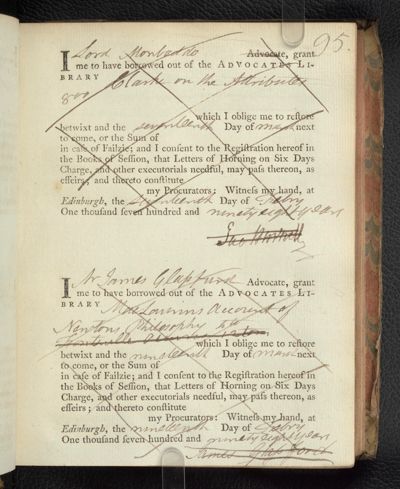 95.
I Lord Monboddo Advocate, grant
me to have borrowed out of the ADVOCATES LI-
BRARY Clarke on the Attributes
8vo
which I oblige me to restore
betwixt and the seventeenth Day of March next
to come, or the Sum of
in case of Failzie; and I consent to the Registration hereof in
the Books of Session, that Letters of Horning on Six Days
Charge, and other executorials needful, may pass thereon, as
effeirs; and thereto constitute
my Procurators: Witness my hand, at
Edinburgh, the seventeenth Day of Febry
One thousand seven hundred and ninety eight years
I Mr James Glassford Advocate, grant
me to have borrowed out of the ADVOCATES LI-
BRARY MacLaurins Account of
Newtons Philosophy 4to
which I oblige me to restore
betwixt and the nineteenth Day of March next
to come, or the Sum of
in case of Failzie; and I consent to the Registration hereof in
the Books of Session, that Letters of Horning on Six Days
Charge, and other executorials needful, may pass thereon, as
effeirs; and thereto constitute
my Procurators: Witness my hand, at
Edinburgh, the nineteenth Day of Febry
One thousand seven hundred and ninety eight years
James Glassford